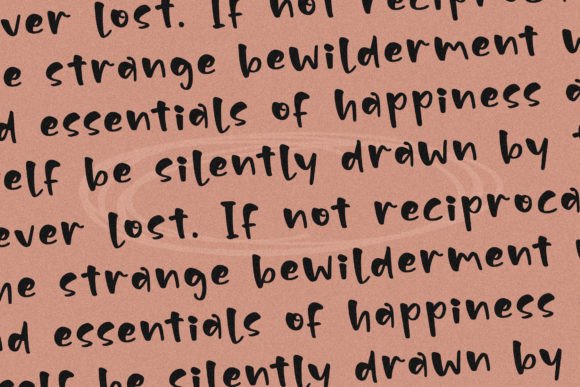 ever lost. If not reciproca
e strange bewilderment w
d essentials of happiness a
self be silently drawn by t
ever lost. If not reciproca
he strange bewilderment
nd essentials of happiness
self be silently drawn by